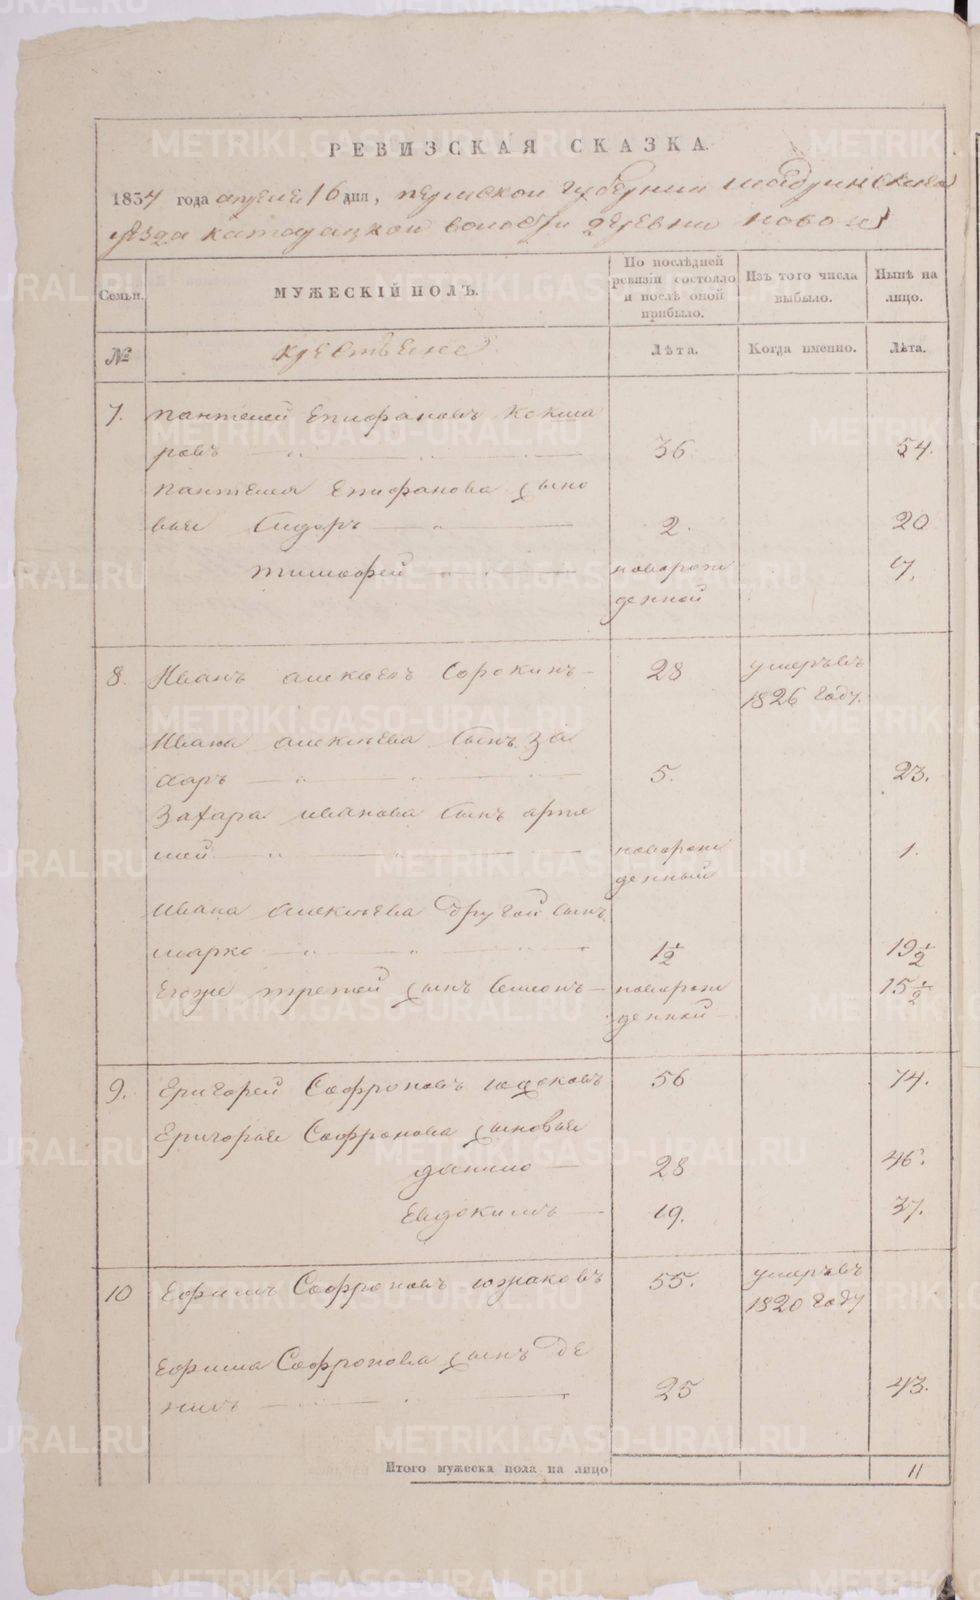 РЕВИЗСКАЯ СКАЗКА.
1834 года апреля 16 дня, пермской губернии шадринскаго
уезда катадацкой волости деревни новои
Семьи.
МУЖЕСКІЙ ПОЛЪ.
По послѣдней ревизіи состояло и послѣ оной прибыло.
Изъ того числа выбыло.
Нынѣ на лицо.
№
крестьяне
Лѣта.
Когда именно.
Лѣта.
7. пантелей Епифановъ Кокша
ровъ 36 54.
пантелея Епифанова сыно
вья Сидоръ 2. 20
тимофей новорож 17.
денной
8. Иванъ алексѣевъ Сорокинъ 28 умеръ въ
1826 году.
Ивана алексѣева сынъ За
харъ 5. 23.
Захара иванова сынъ арте
мей новорож 1.
денный
ивана алексѣева другой сынъ
марко 1 1/2 19 1/2
Егоже третей сынъ Семионъ новорож 15 1/2
денной
9. Григорей Софроновъ юшковъ 56 74.
Григорья Софронова сыновья
данило 28 46.
Евдокимъ 19. 37.
10 Ефимъ Софроновъ южаковъ 55. умеръ въ
1820 году
Ефима Софронова сынъ Де
нисъ 25 43.
Итого мужеска пола на лицо 11
METRIKI.GASO-URAL.RU